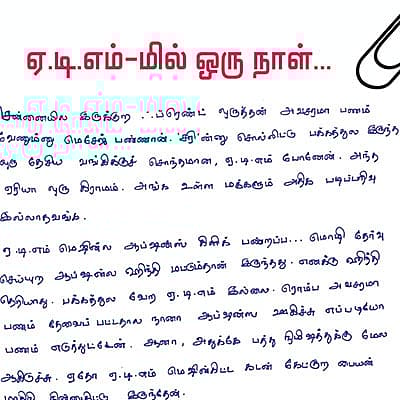 ஏ.டி.எம்-மில் ஒரு நாள்...
சென்னையில இருக்குற ஃப்ரெண்ட் ஒருத்தன் அவசரமா பணம்
வேணும்னு மெசேஜ் பண்ணான். சரி'ன்னு சொல்லிட்டு பக்கத்துல இருந்த
ஒரு தேசிய வங்கிக்குச் சொந்தமான, ஏ.டி.எம் போனேன். அந்த
ஏரியா ஒரு கிராமம். அங்க உள்ள மக்களும் அதிக படிப்பறிவு
இல்லாதவங்க.
ஏ.டி.எம் மெஷின்ல ஆப்ஷன்ஸ் கிளிக் பண்றப்ப... மொழி தேர்வு
செய்யுற ஆப்ஷன்ல ஹிந்தி மட்டும்தான் இருந்தது. எனக்கு ஹிந்தி
தெரியாது. பக்கத்துல வேற ஏ.டி.எம் இல்லை. ரொம்ப அவசரமா
பணம் தேவைப்பட்டதால நானா ஆப்ஷன்ஸ ஊகிச்சு எப்படியோ
பணம் எடுத்துட்டேன். ஆனா, அதுக்கே பத்து நிமிஷத்துக்கு மேல
ஆகிடுச்சு. ஏதோ ஏ.டி.எம் மெஷின்கிட்ட கடன் கேட்டுற பையன்
மாதிரி நின்னுகிட்டு இருந்தேன்.